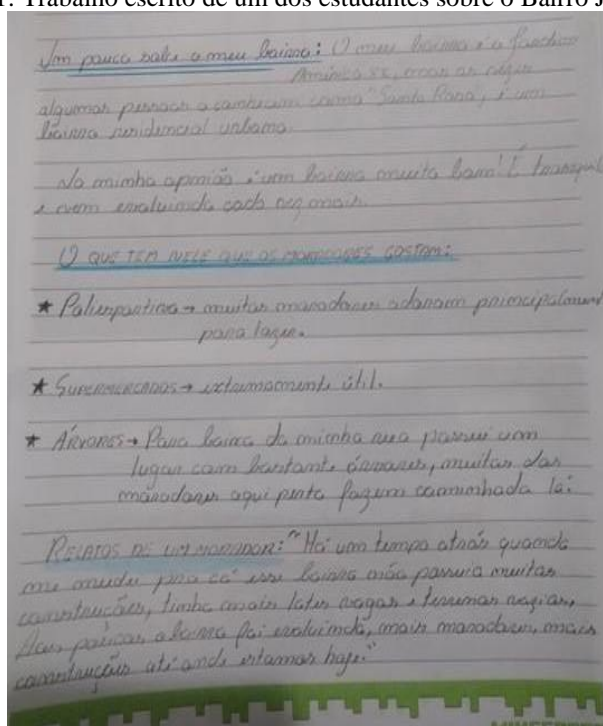 1: Trabalho escrito de um dos estudantes sobre o Bairro J
Um pouco sobre o meu bairro: O meu bairro é o Jardim
América
algumas pessoas o conhecem como "Santa Rosa", é um
bairro residencial urbano.
Na minha opinião é um bairro muito bom! É tranquil
e vem evoluindo cada vez mais.
O QUE TEM NELE QUE OS MORADORES GOSTAM:
★ Poliesportivo → muitos moradores adoram principalment
para lazer.
★ SUPERMERCADOS → extremamente útil.
★ ÁRVORES → Para baixo da minha rua possui um
lugar com bastante árvores, muitos dos
moradores aqui perto fazem caminhada lá.
RELATOS DE UM MORADOR: "Há um tempo atrás quando
me mudei pra cá esse bairro não possuia muitas
construções, tinha mais lotes vagos e terrenos vazios,
Aos poucos o bairro foi evoluindo, mais moradores, mais
construções até onde estamos hoje."